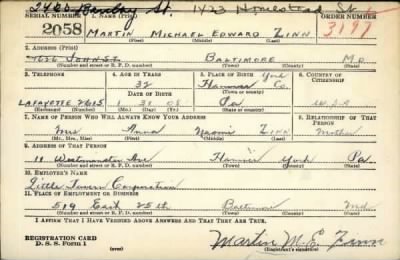 2400 Barclay St. 1423 Homestead St
SERIAL NUMBER 1. NAME (Print) ORDER NUMBER
2058 MARTIN MICHAEL EDWARD ZINN 3197
(First) (Middle) (Last)
2. ADDRESS (Print)
1626 JOHN ST. BALTIMORE MD
(Number and street or R. F. D. number) (Town) (County) (State)
3. TELEPHONE 4. AGE IN YEARS 5. PLACE OF BIRTH 6. COUNTRY OF CITIZENSHIP
32 Hanover York Co.
DATE OF BIRTH (Town or county)
LAFAYETTE 2615 1 31 08 Pa U.S.A
(Exchange) (Number) (Mo.) (Day) (Yr.) (State or country)
7. NAME OF PERSON WHO WILL ALWAYS KNOW YOUR ADDRESS 8. RELATIONSHIP OF THAT PERSON
Mrs Anna Naomi Zinn Mother
(Mr., Mrs., Miss) (First) (Middle) (Last)
9. ADDRESS OF THAT PERSON
11 Westminster Ave Hanover York Pa
(Number and street or R. F. D. number) (Town) (County) (State)
10. EMPLOYER'S NAME
Little Tavern Corporation
11. PLACE OF EMPLOYMENT OR BUSINESS
519 East 25th Baltimore Md
(Number and street or R. F. D. number) (Town) (County) (State)
I AFFIRM THAT I HAVE VERIFIED ABOVE ANSWERS AND THAT THEY ARE TRUE.
REGISTRATION CARD
D. S. S. Form 1 (over) Martin M. E. Zinn
(Registrant's signature)